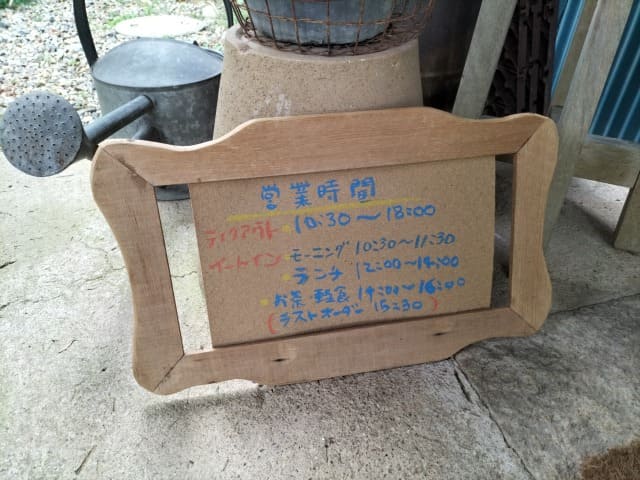 営業時間
テイクアウト・10:30〜18:00
イートイン・モーニング 10:30〜11:30
・ランチ 12:00〜14:00
・お茶・軽食 14:00〜16:00
(ラストオーダー 15:30)